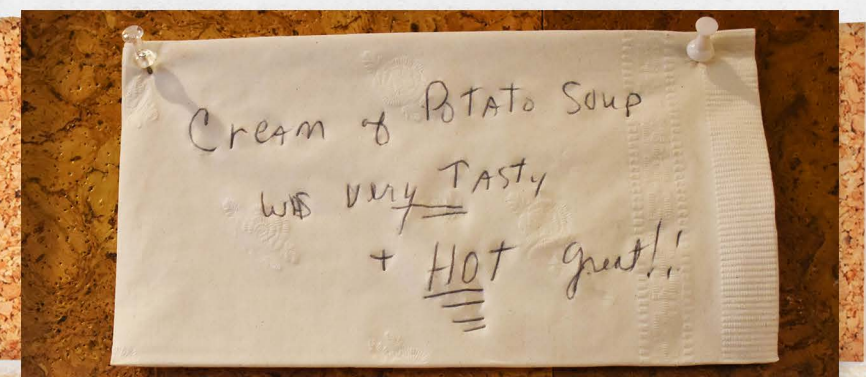 Cream of Potato Soup
was very Tasty
+ HOT great!!